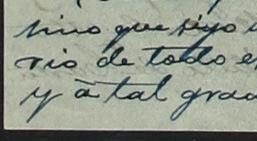 sino que sigo
rio de todo e
y á tal grad